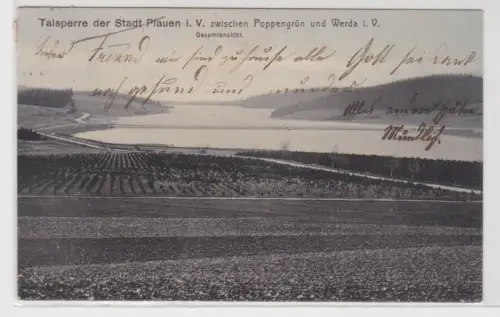 Talsperre der Stadt Plauen i. V. zwischen Poppengrün und Werda i. V.
Gesamtansicht.
Lieber Freund wir sind zu Hause alle Gott sei dank
noch gesund und munder
Alles andere
Mündlich.